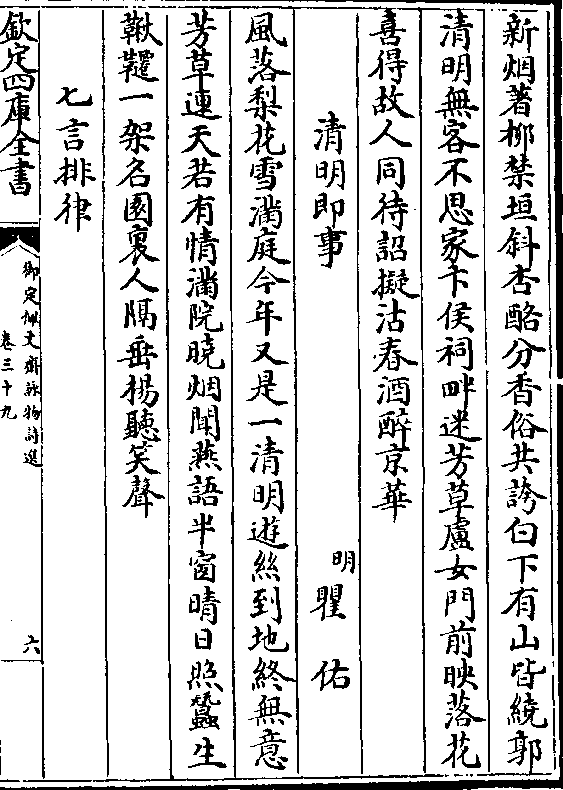 新烟著栁禁垣斜杏酪分香俗共誇白下有山皆繞郭
清明無客不思家卞侯祠畔迷芳草盧女門前映落花
喜得故人同待詔擬沽春酒醉京華
清明即事
明
瞿佑
風落梨花雪滿庭今年又是一清明遊絲到地終無意
芳草連天若有情滿院曉烟聞燕語半窗晴日照蠶生
鞦韆一架名園裏人隔垂楊聽笑聲
七言排律
欽定四庫全書
御定佩文齋詠物詩選
卷三十九
六